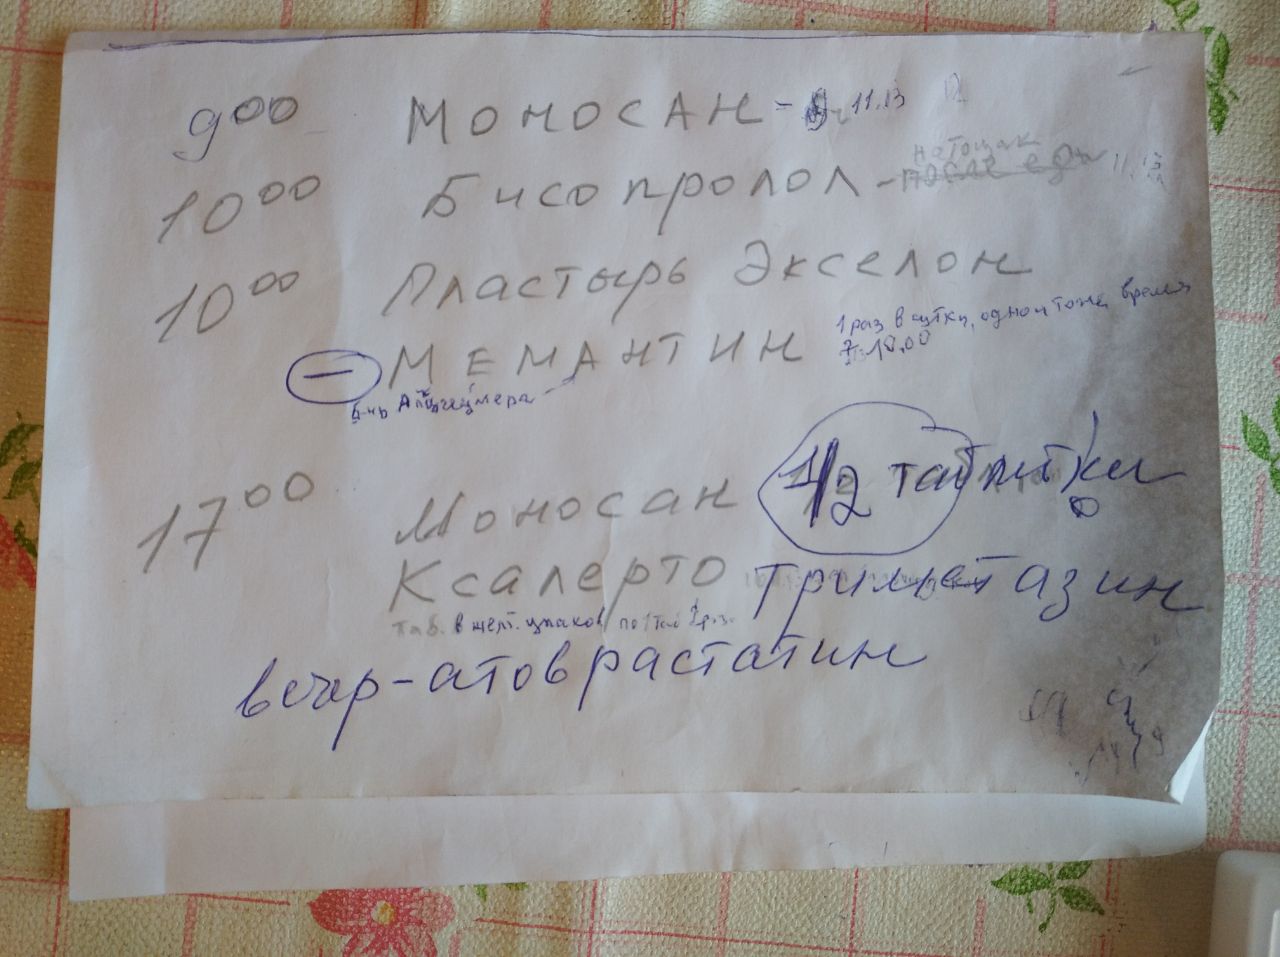 9 00 Моносан - 11.13
10 00 Бисопролол - натощак
после еды
10 00 Пластырь Экселон
1 раз в сутки, одно и тоже время
- Мемантин 10.00
б-нь Альцгеймера
17 00 Моносан 1/2 таблетки
Ксалерто триметазин
таб. в желт. упаков по 1 таб 1 р.
вечер - атоврастатин